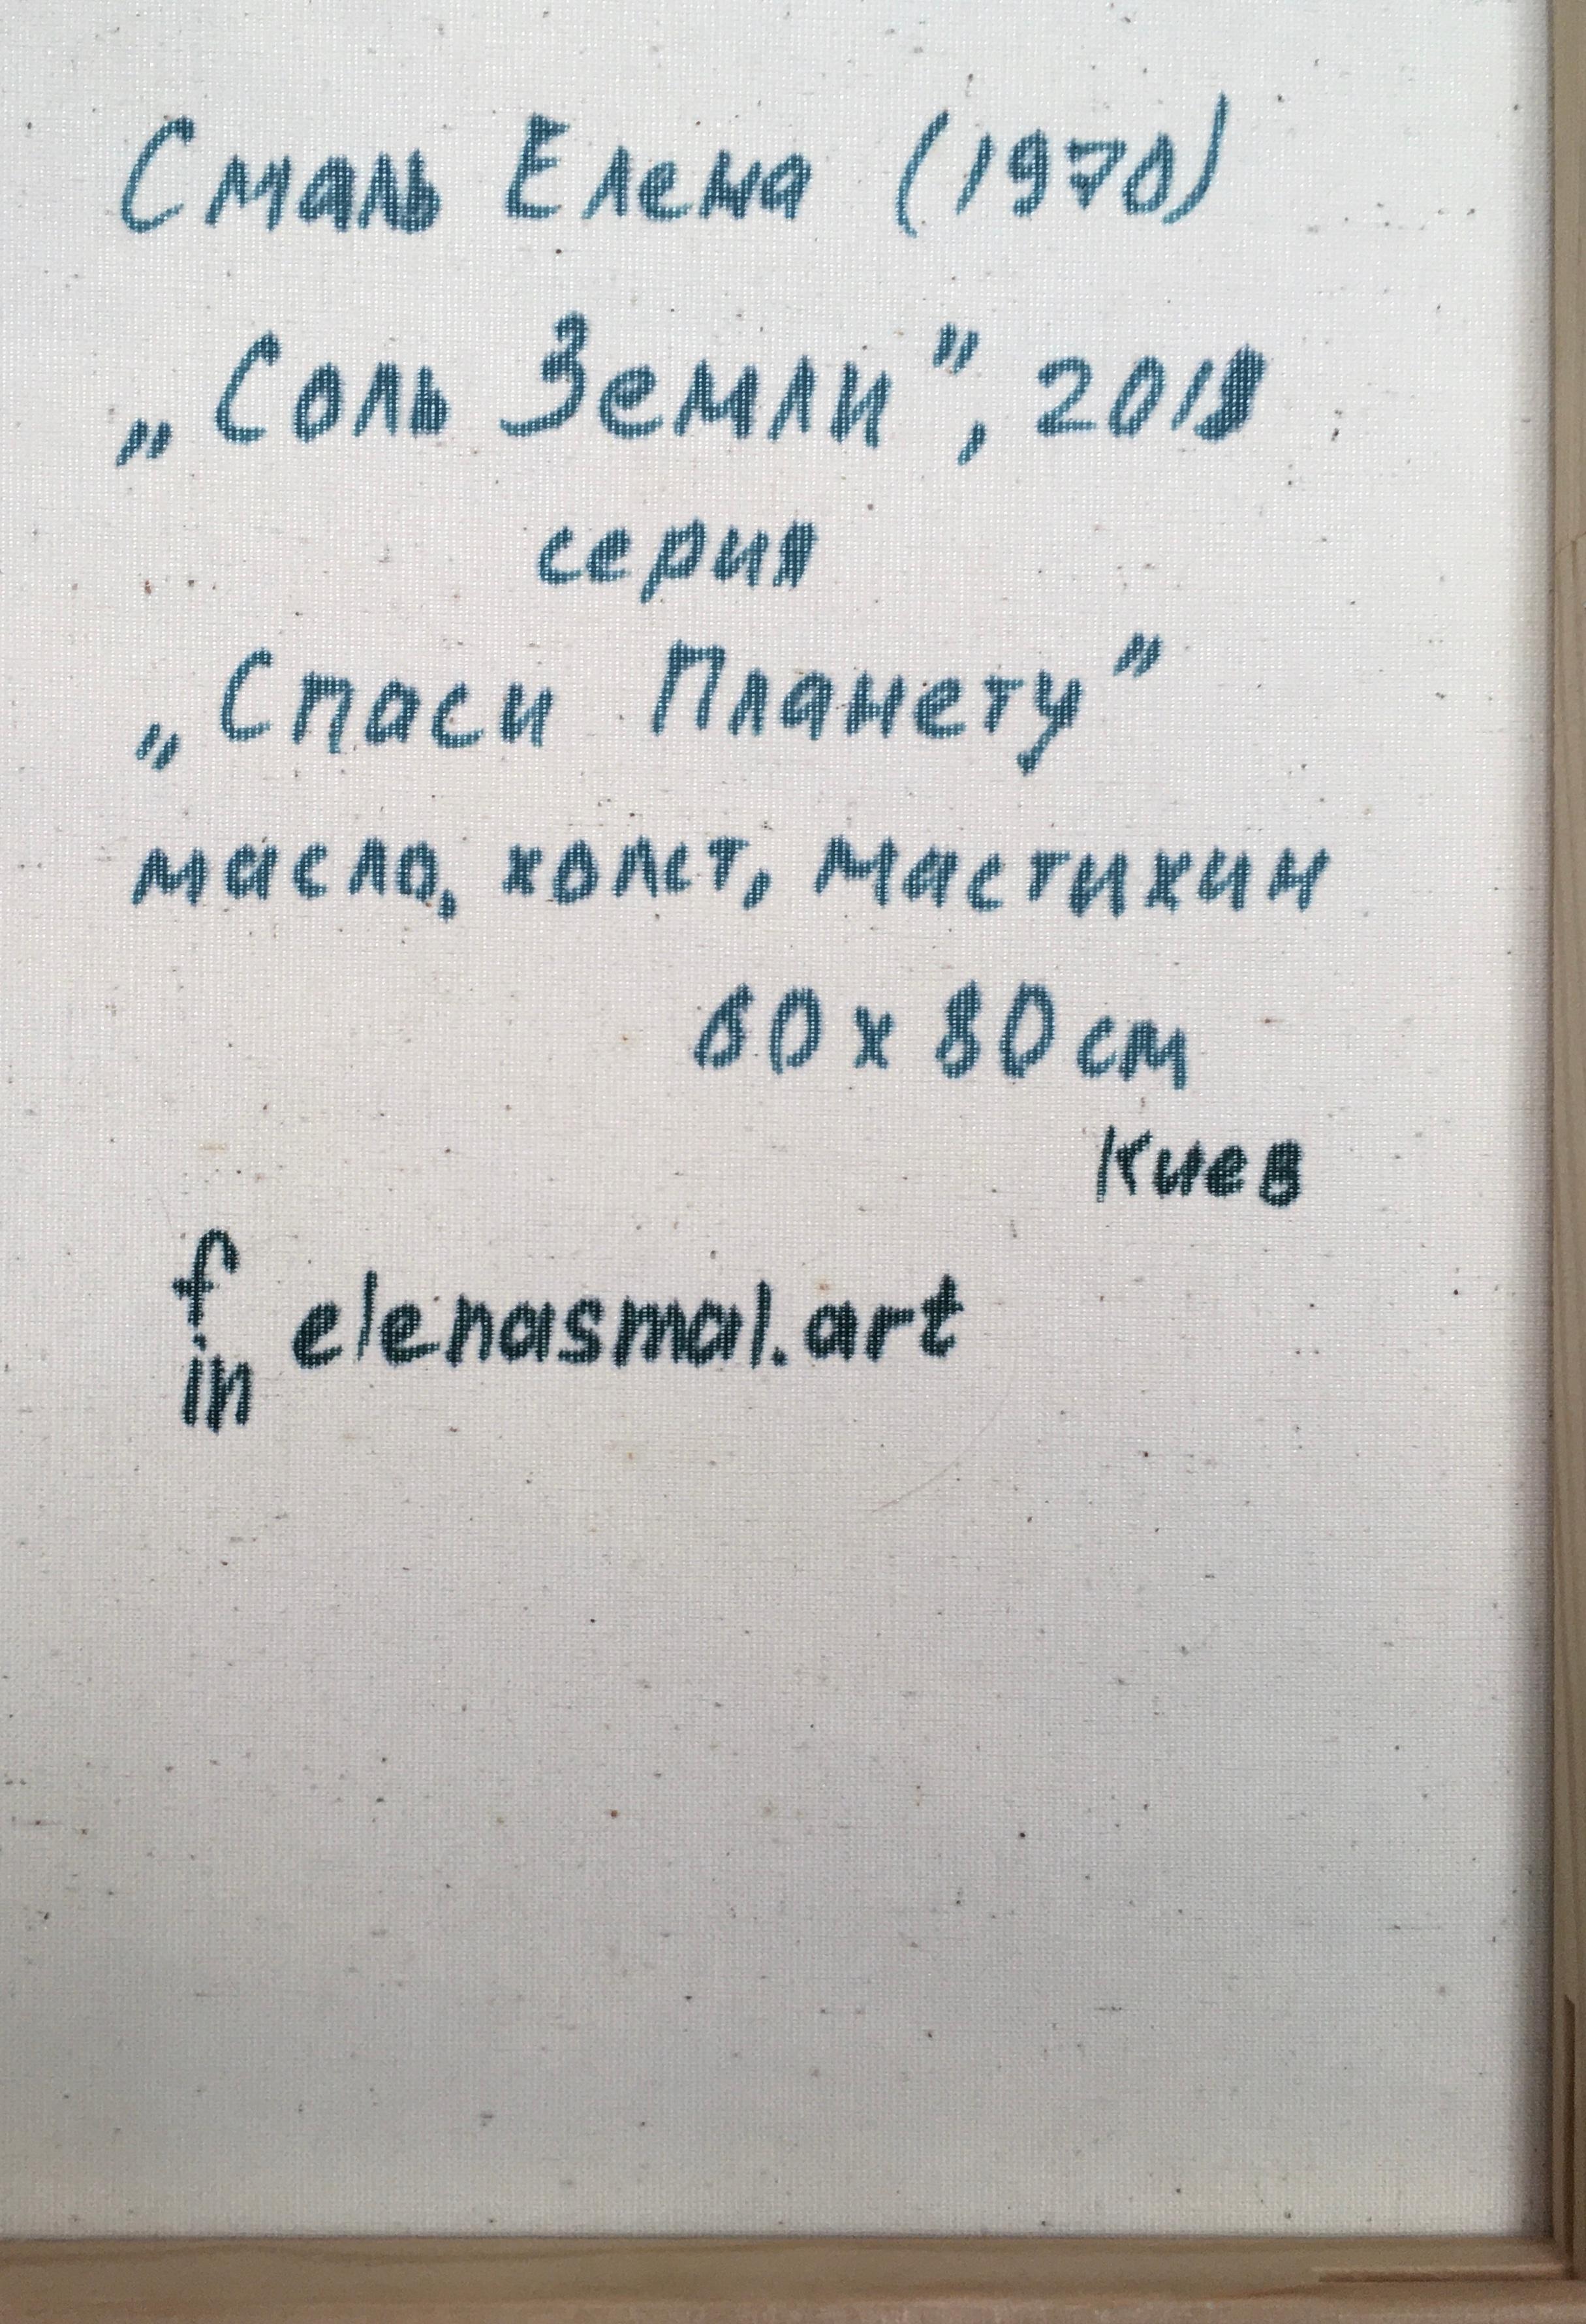 Смаль Елена (1970)
„Соль Земли”, 2018
серия
„Спаси Планету”
масло, холст, мастихин
60 x 80 см
Киев
f
elenasmal.art
in